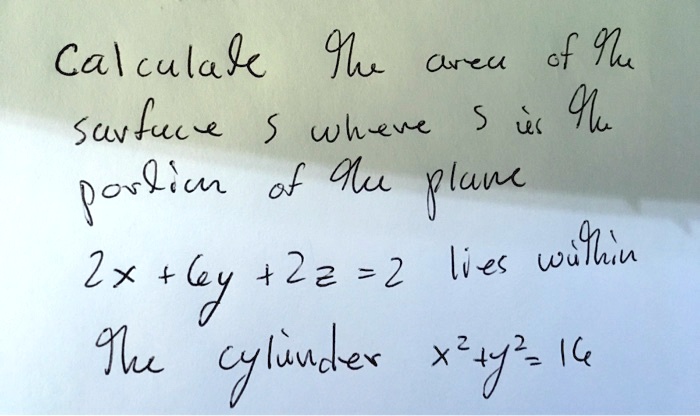 Calculate the area of the
surface S where S is the
portion of the plane
2x + 6y + 2z = 2 lies within
the cylinder x²+y²= 16